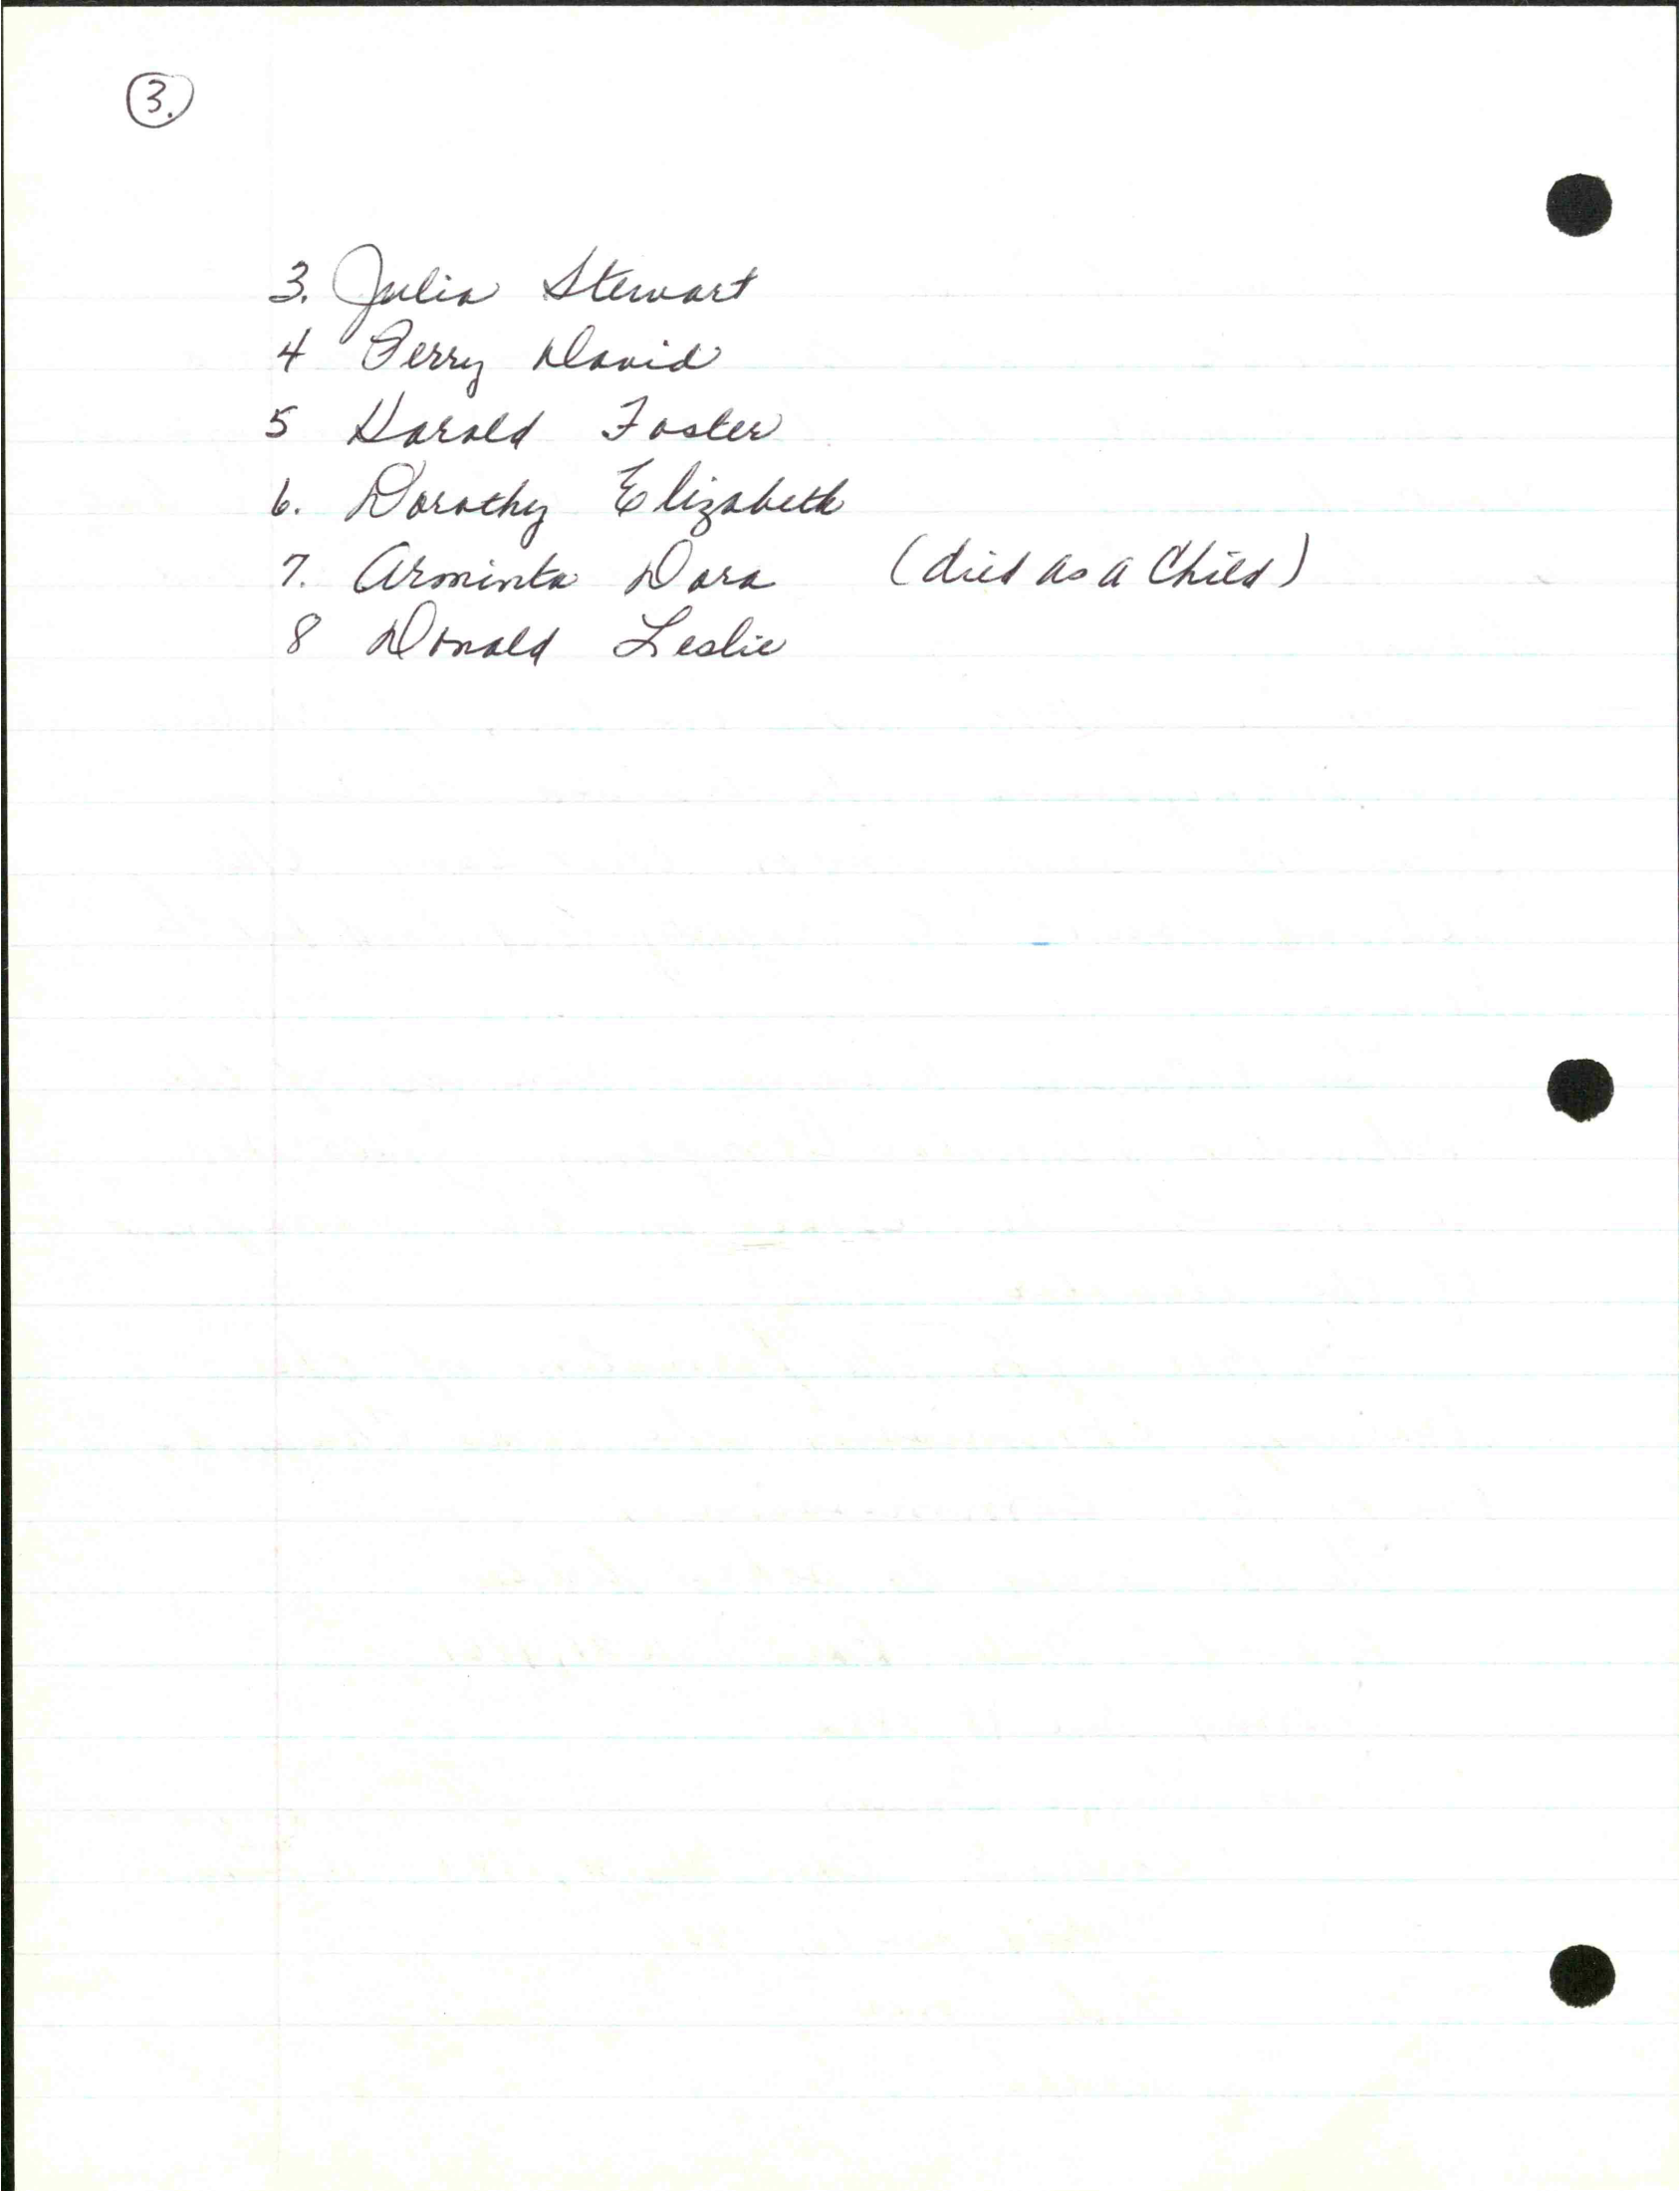 3.
3. Julia Stewart
4 Perry David
5 Harold Foster
6. Dorothy Elizabeth
7. Arminta Dora (died as a Child)
8 Donald Leslie